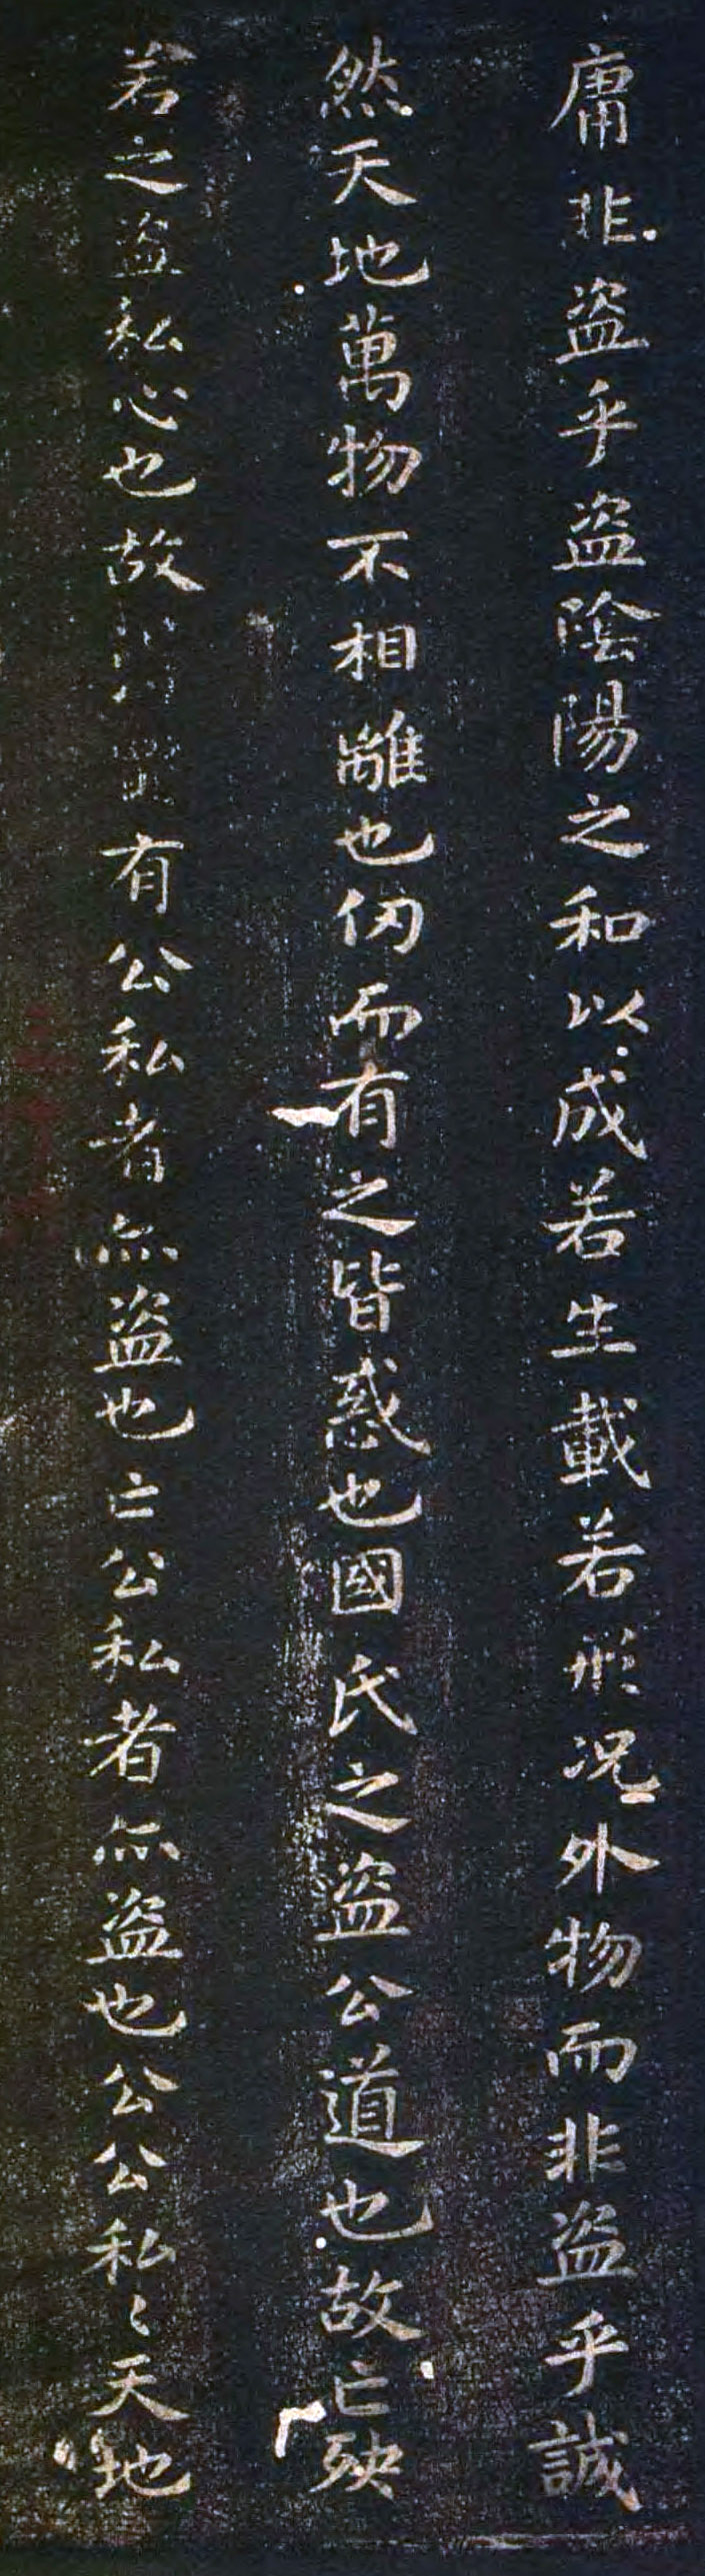 庸非盗乎盗陰陽之和以成若生載若形况外物而非盗乎誠
然天地萬物不相離也仞而有之皆惑也國氏之盗公道也故亡殃
若之盗私心也故有公私者亦盗也亡公私者亦盗也公公私〻天地